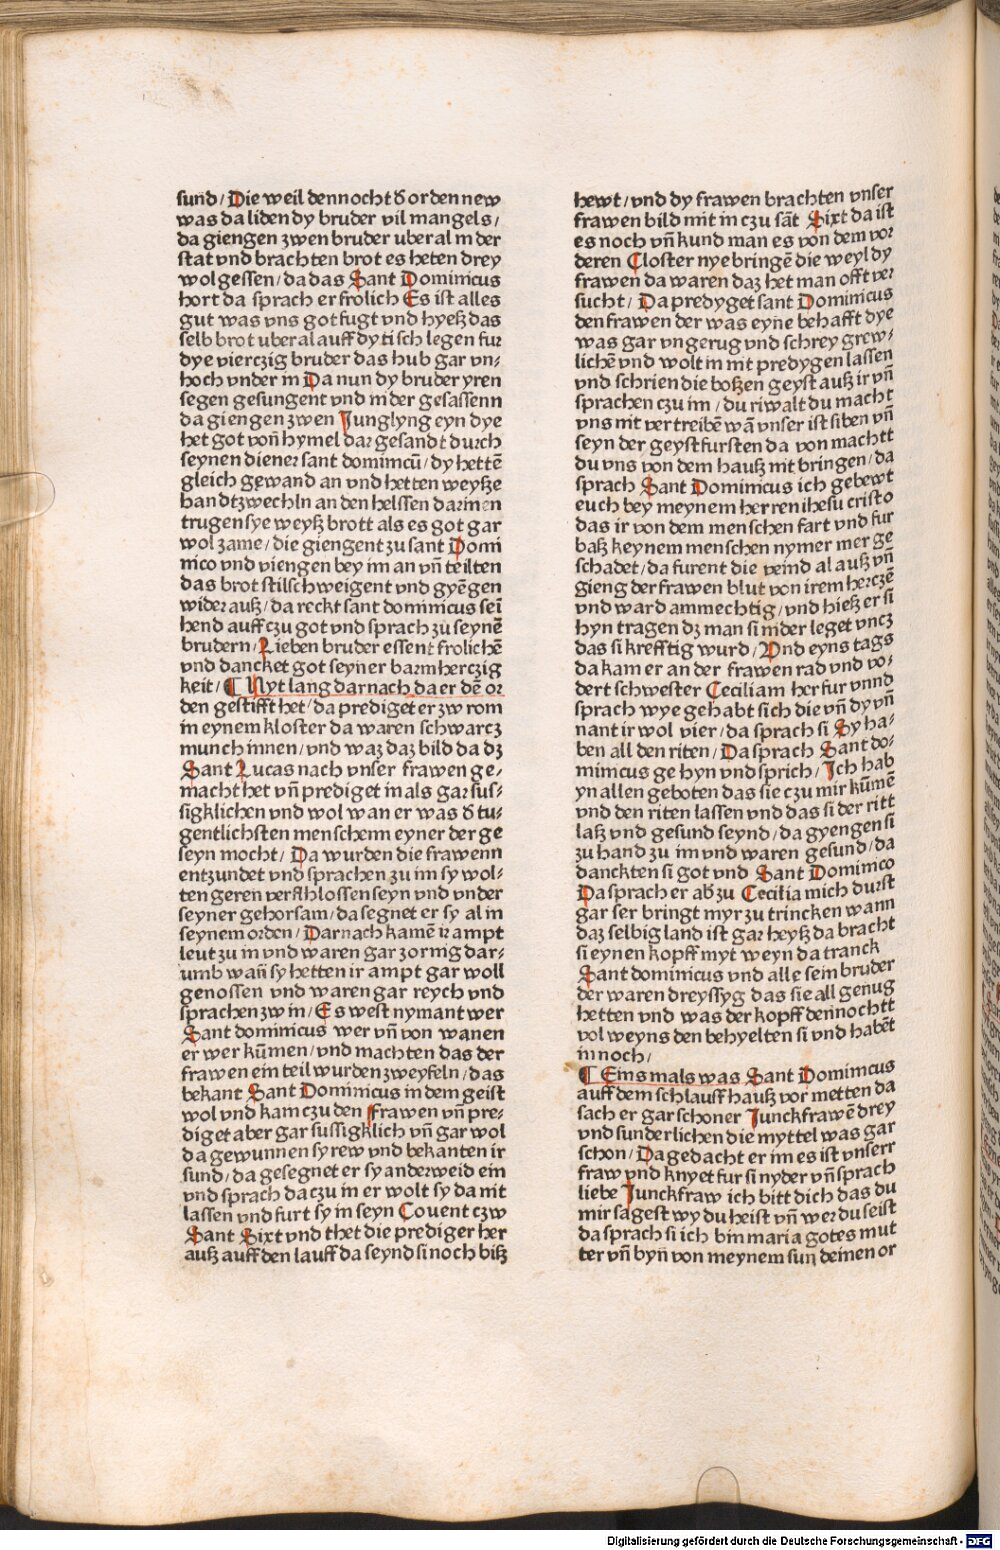 sund/ Die weil dennocht ď orden new
was da liden dy bruder vil mangels/
da giengen zwen bruder uber al in der
stat vnd brachten brot es heten drey
wol gessen/ da das Sant Dominicus
hort da sprach er frolich Es ist alles
gut was vns got fugt vnd hyeß das
selb brot uber al auff dy tisch legen fur
dye vierczig bruder das hub gar vn-
hoch vnder in Da nun dy bruder yren
segen gesungent vnd nider gesassenn
da giengen zwen Junglyng eyn dye
het got von hymel dar gesandt durch
seynen diener sant dominicū/ dy hettē
gleich gewand an vnd hetten weysse
handtzwechln an den helssen dar inen
trugen sye weyß brott als es got gar
wol zame/ die giengent zu sant Domi
nico vnd viengen bey im an vn̄ teilten
das brot stilschweigent vnd gyēgen
wider auß/ da reckt sant dominicus sei
hend auff czu got vnd sprach zu seynē
brudern/ Lieben bruder essent frolichē
vnd dancket got seyner barmherczig
keit/ ¶ Nyt lang darnach da er dē or
den gestifft het/ da prediget er zw rom
in eynem kloster da waren schwarcz
munch innen/ vnd waz daz bild da dz
Sant Lucas nach vnser frawen ge-
macht het vn̄ prediget in als gar sus-
sigklichen vnd wol wan er was ď tu-
gentlichsten menschenn eyner der ge
seyn mocht/ Da wurden die frawenn
entzundet vnd sprachen zu im sy wol-
ten geren verschlossen seyn vnd vnder
seyner gehorsam/ da segnet er sy al in
seynem orden/ Darnach kamē ir ampt
leut zu in vnd waren gar zornig dar-
umb wan̄ sy hetten ir ampt gar woll
genossen vnd waren gar reych vnd
sprachen zw in/ Es west nymant wer
Sant dominicus wer vn̄ von wanen
er wer kūmen/ vnd machten das der
frawen ein teil wurden zweyfeln/ das
bekant Sant Dominicus in dem geist
wol vnd kam czu den Frawen vn̄ pre-
diget aber gar sussigklich vn̄ gar wol
da gewunnen sy rew vnd bekanten ir
sund/ da gesegnet er sy anderweid ein
vnd sprach da czu in er wolt sy da nit
lassen vnd furt sy in seyn Couent czw
Sant Sixt vnd thet die prediger her
auß auff den lauff da seynd si noch biß
hewt/ vnd dy frawen brachten vnser
frawen bild mit in czu sāt Sixt da ist
es noch vn̄ kund man es von dem vor
deren Closter nye bringē die weyl dy
frawen da waren daz het man offt ver
sucht/ Da predyget sant Dominicus
den frawen der was eyne behafft dye
was gar vngerug vnd schrey grew-
lichē vnd wolt in nit predygen lassen
vnd schrien die boßen geyst auß ir vn̄
sprachen czu im/ du riwalt du macht
vns nit vertreibē wā vnser ist siben vn̄
seyn der geystfursten da von machtt
du vns von dem hauß nit bringen/ da
sprach Sant Dominicus ich gebewt
euch bey meynem herren ihesu cristo
das ir von dem menschen fart vnd fur
baß keynem menschen nymer mer ge
schadet/ da furent die veind al auß vn̄
gieng der frawen blut von irem herczē
vnd ward ammechtig/ vnd hieß er si
hyn tragen dz man si nider leget vncz
das si krefftig wurd/ Vnd eyns tags
da kam er an der frawen rad vnd vo-
dert schwester Ceciliam her fur vnnd
sprach wye gehabt sich die vn̄ dy vn̄
nant ir wol vier/ da sprach si Sy ha-
ben all den riten/ Da sprach Sant do-
minicus ge hyn vnd sprich/ Ich hab
yn allen geboten das sie czu mir kūmē
vnd den riten lassen vnd das si der ritt
laß vnd gesund seynd/ da gyengen si
zu hand zu im vnd waren gesund/ da
danckten si got vnd Sant Dominico
Da sprach er ab̄ zu Cecilia mich durst
gar ser bringt myr zu trincken wann
daz selbig land ist gar heyß da bracht
si eynen kopff myt weyn da tranck
Sant dominicus vnd alle sein bruder
der waren dreyssyg das sie all genug
hetten vnd was der kopff dennochtt
vol weyns den behyelten si vnd habēt
in noch/
¶ Eins mals was Sant Dominicus
auff dem schlauff hauß vor metten da
sach er gar schoner Junckfrawē drey
vnd sunderlichen die myttel was gar
schon/ Da gedacht er im es ist vnserr
fraw vnd knyet fur si nyder vn̄ sprach
liebe Junckfraw ich bitt dich das du
mir sagest wy du heist vn̄ wer du seist
da sprach si ich bin maria gotes mut
ter vn̄ byn von meynem sun deinen or
Digitalisierung gefördert durch die Deutsche Forschungsgemeinschaft - DFG